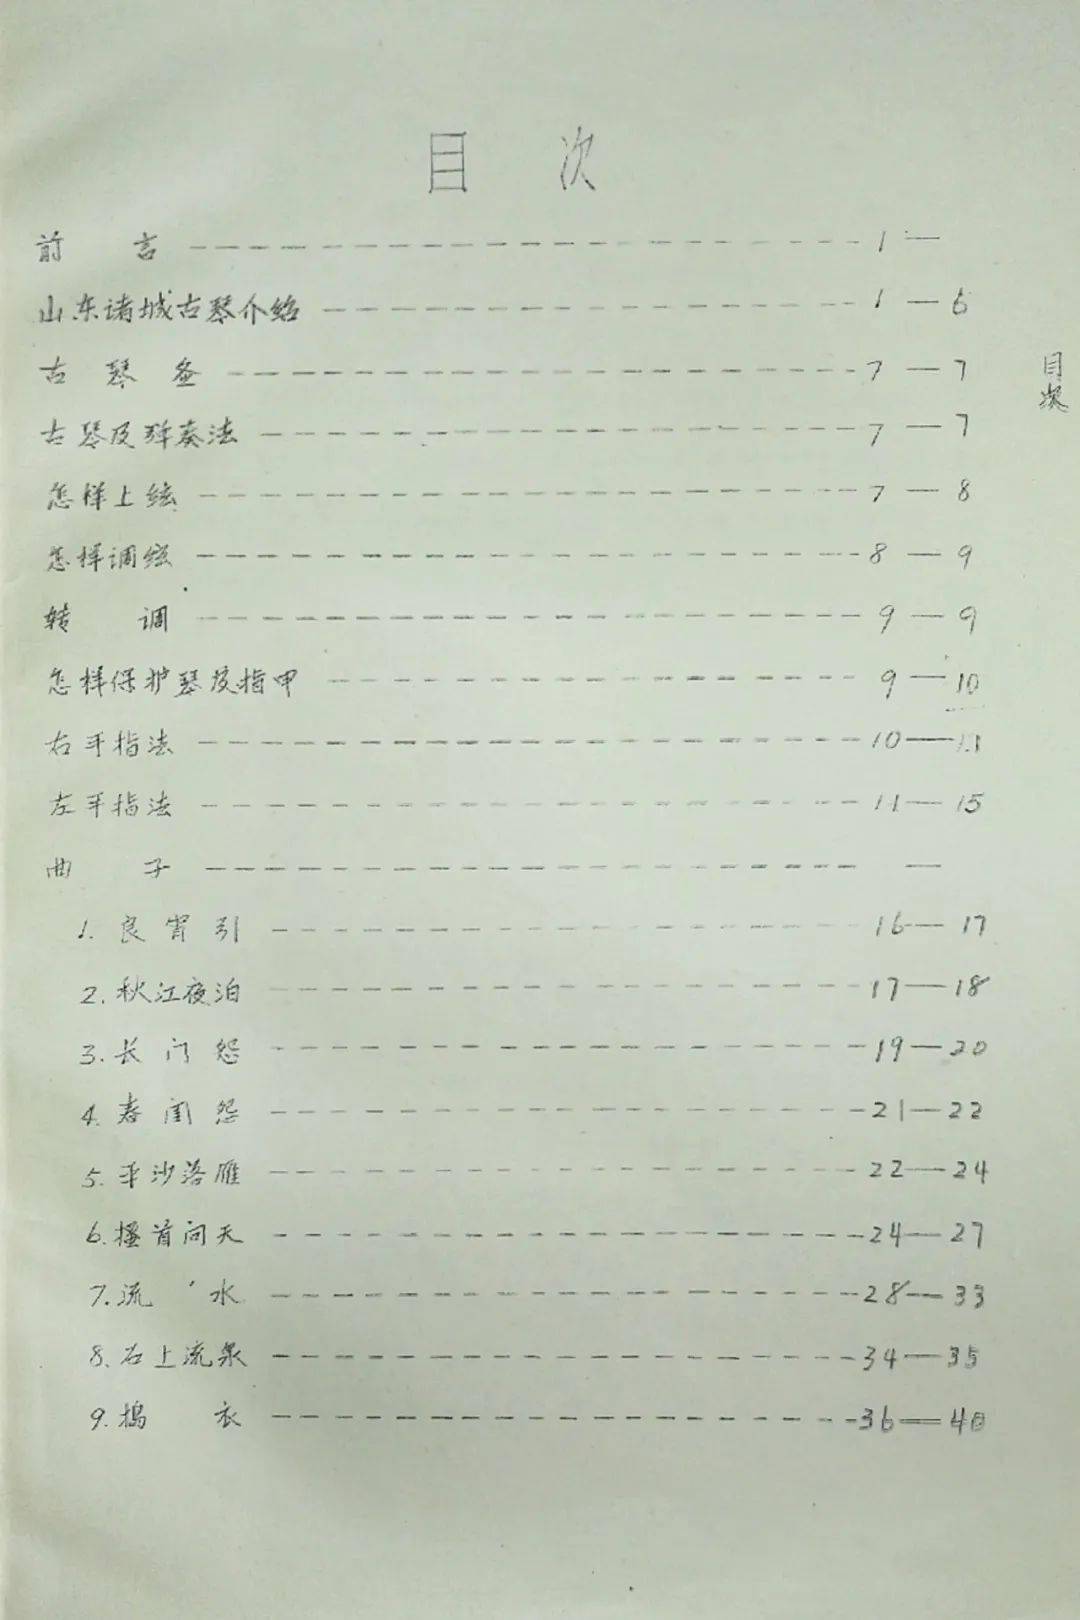 目 次
前 言 ———————————— 1 —
山东诸城古琴介绍 ———————————— 1 — 6
古 琴 ———————————— 7 — 7
古琴及弹奏法 ———————————— 7 — 7
怎样上弦 ———————————— 7 — 8
怎样调弦 ———————————— 8 — 9
转 调 ———————————— 9 — 9
怎样保护琴及指甲 ———————————— 9 — 10
右手指法 ———————————— 10 — 11
左手指法 ———————————— 11 — 15
曲 子 ———————————— —
1. 良宵引 ———————————— 16 — 17
2. 秋江夜泊 ———————————— 17 — 18
3. 长门怨 ———————————— 19 — 20
4. 春闺怨 ———————————— 21 — 22
5. 平沙落雁 ———————————— 22 — 24
6. 搔首问天 ———————————— 24 — 27
7. 流 水 ———————————— 28 — 33
8. 石上流泉 ———————————— 34 — 35
9. 捣 衣 ———————————— 36 — 40
目次